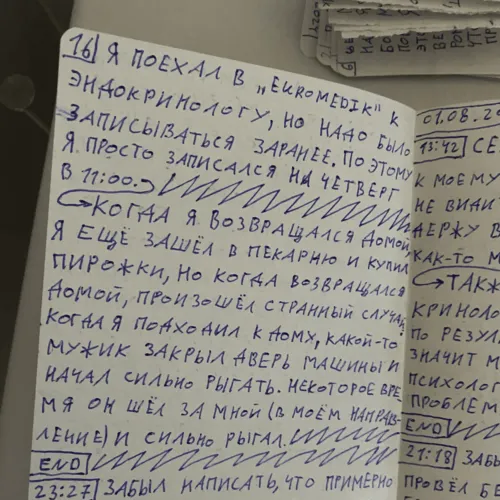 16 Я ПОЕХАЛ В „EUROMEDIK" К
ЭНДОКРИНОЛОГУ, НО НАДО БЫЛО
ЗАПИСЫВАТЬСЯ ЗАРАНЕЕ. ПО ЭТОМУ
Я ПРОСТО ЗАПИСАЛСЯ НА ЧЕТВЕРГ
В 11:00.
КОГДА Я ВОЗВРАЩАЛСЯ ДОМОЙ
Я ЕЩЁ ЗАШЁЛ В ПЕКАРНЮ И КУПИЛ
ПИРОЖКИ, НО КОГДА ВОЗВРАЩАЛСЯ
ДОМОЙ, ПРОИЗОШЁЛ СТРАННЫЙ СЛУЧАЙ.
КОГДА Я ПОДХОДИЛ К ДОМУ, КАКОЙ-ТО
МУЖИК ЗАКРЫЛ ДВЕРЬ МАШИНЫ И
НАЧАЛ СИЛЬНО РЫГАТЬ. НЕКОТОРОЕ ВРЕ
МЯ ОН ШЁЛ ЗА МНОЙ (В МОЁМ НАПРАВ-
ЛЕНИЕ) И СИЛЬНО РЫГАЛ.
END
23:27 ЗАБЫЛ НАПИСАТЬ, ЧТО ПРИМЕРНО
01.08.20
13:42 СЕ
К МОЕМУ
НЕ ВИДИ
ДЕРЖУ В
КАК-ТО М
ТАКЖ
КРИНОЛО
ПО РЕЗУЛ
ЗНАЧИТ М
ПСИХОЛОГ
ПРОБЛЕМ
END
21:18 ЗАБЫ
ПРОВЁЛ БЕ